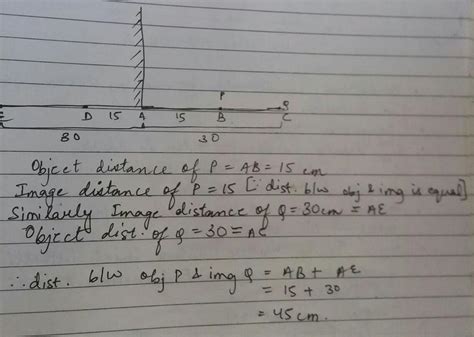 P Q
E D 15 A 15 B C
30 30
Object distance of P = AB = 15 cm
Image distance of P = 15 [∵ dist. b/w obj & img is equal]
Similarly Image distance of Q = 30cm = AE
Object dist. of Q = 30 = AC
∴ dist. b/w obj P & img Q = AB + AE
= 15 + 30
= 45 cm.